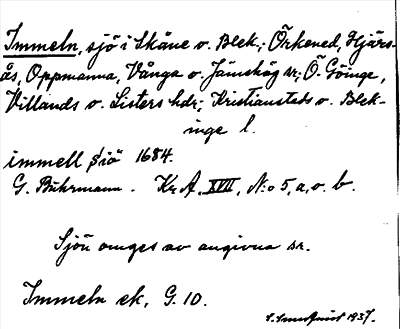 Immeln, sjö i Skåne o. Blek.; Örkened, Hjärs-
ås, Oppmanna, Vånga o. Jämshög sr; Ö. Göinge,
Villands o. Listers hdr; Kristianstads o. Blek-
inge l.
immell siö 1684.
G. Buhrmann. Kr A, XVII, N:o 5, a, o. b.
Sjön omges av angivna sr.
Immeln ek, G. 10.
1937.